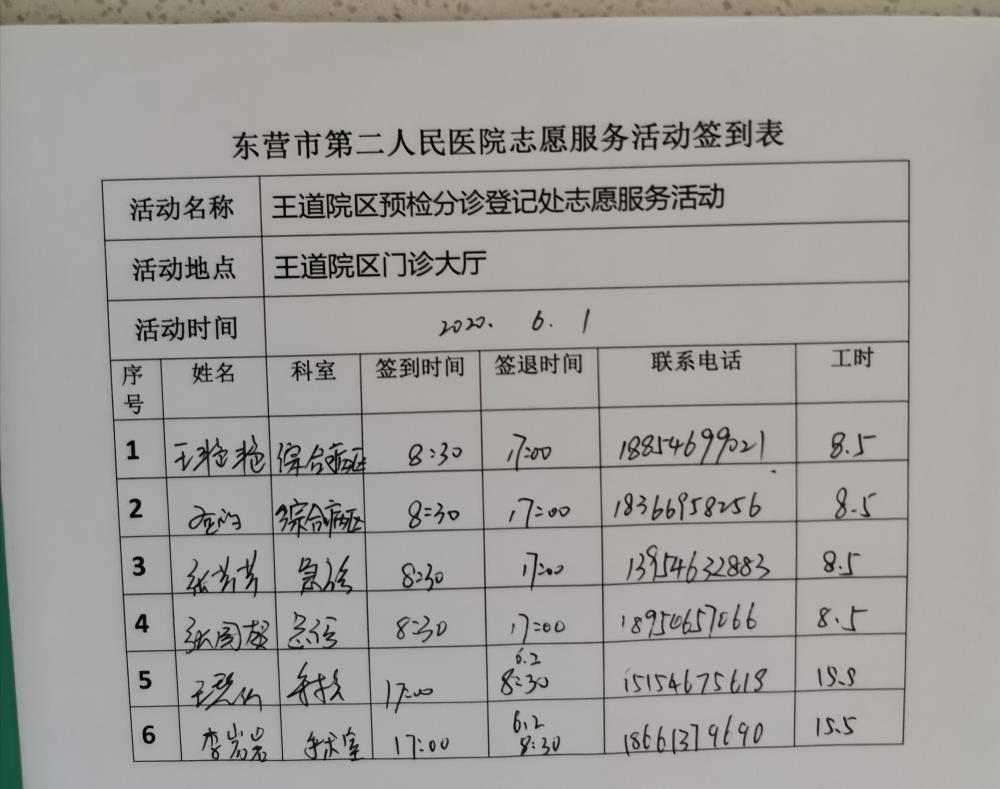 东营市第二人民医院志愿服务活动签到表
活动名称 王道院区预检分诊登记处志愿服务活动
活动地点 王道院区门诊大厅
活动时间 2020. 6. 1
序号 姓名 科室 签到时间 签退时间 联系电话 工时
1 王艳艳 综合病区 8:30 17:00 18854699021 8.5
2 综合病区 8:30 17:00 18366958256 8.5
3 张芳芳 急诊 8:30 17:00 13954632883 8.5
4 张国超 急诊 8:30 17:00 18950657066 8.5
5 17:00 6.2 8:30 15154675618 15.5
6 李岩岩 手术室 17:00 6.2 8:30 18661379690 15.5